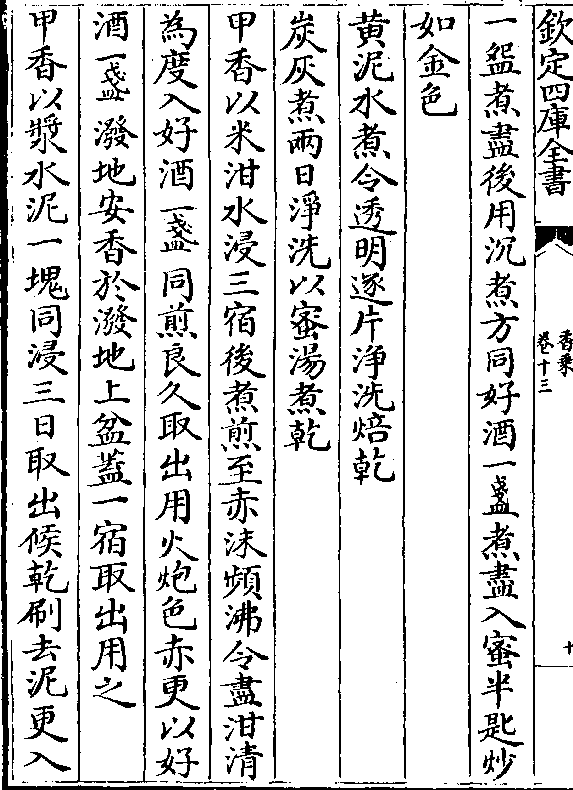 欽定四庫全書
香乗
卷十三
十
一盌煮盡後用沉煮方同好酒一盞煮盡入蜜半匙炒
如金色
黄泥水煮令透明逐片浄洗焙乾
炭灰煮兩日淨洗以蜜湯煮乾
甲香以米泔水浸三宿後煮煎至赤沫頻沸令盡泔清
為度入好酒一盞同煎良久取出用火炮色赤更以好
酒一盞潑地安香於潑地上盆蓋一宿取出用之
甲香以漿水泥一塊同浸三日取出候乾刷去泥更入